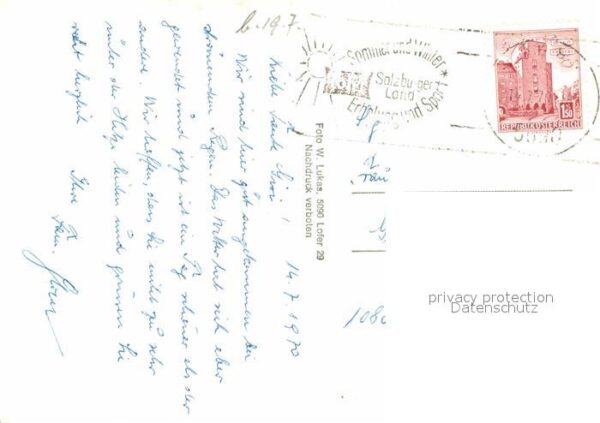 b. 19.7.
14.7.1970
Liebe Tante Gisi!
Wir sind hier gut angekommen bei
strömendem Regen. Das Wetter hat sich aber
gewendet und jetzt ist ein Tag schöner als der
andere. Wir hoffen, dass Sie nicht zu sehr
unter der Hitze leiden und grüssen Sie
recht herzlich
Ihre
Fam.
Foto W. Lukas, 5090 Lofer 29
Nachdruck verboten
Sommer und Winter
Salzburger
Land
Erholung und Sport
1.50
REPUBLIK ÖSTERREICH
1080
privacy protection
Datenschutz